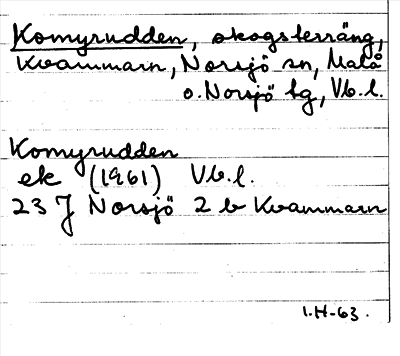 Komyrudden, skogsterräng,
Kvammarn, Norsjö sn, Malå
o. Norsjö tg, Vb. l.
Komyrudden
ek (1961) Vb. l.
23 J Norsjö 2 b Kvammarn
I.H-63.